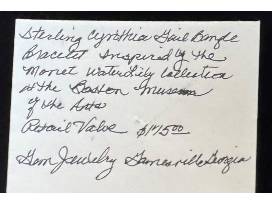 Sterling Cynthia Gail Bangle
Bracelet Inspired by the
Monet Waterlily Collection
at the Boston Museum
of the Arts
Retail Value $175.00
Gem Jewelry Gainesville Georgia